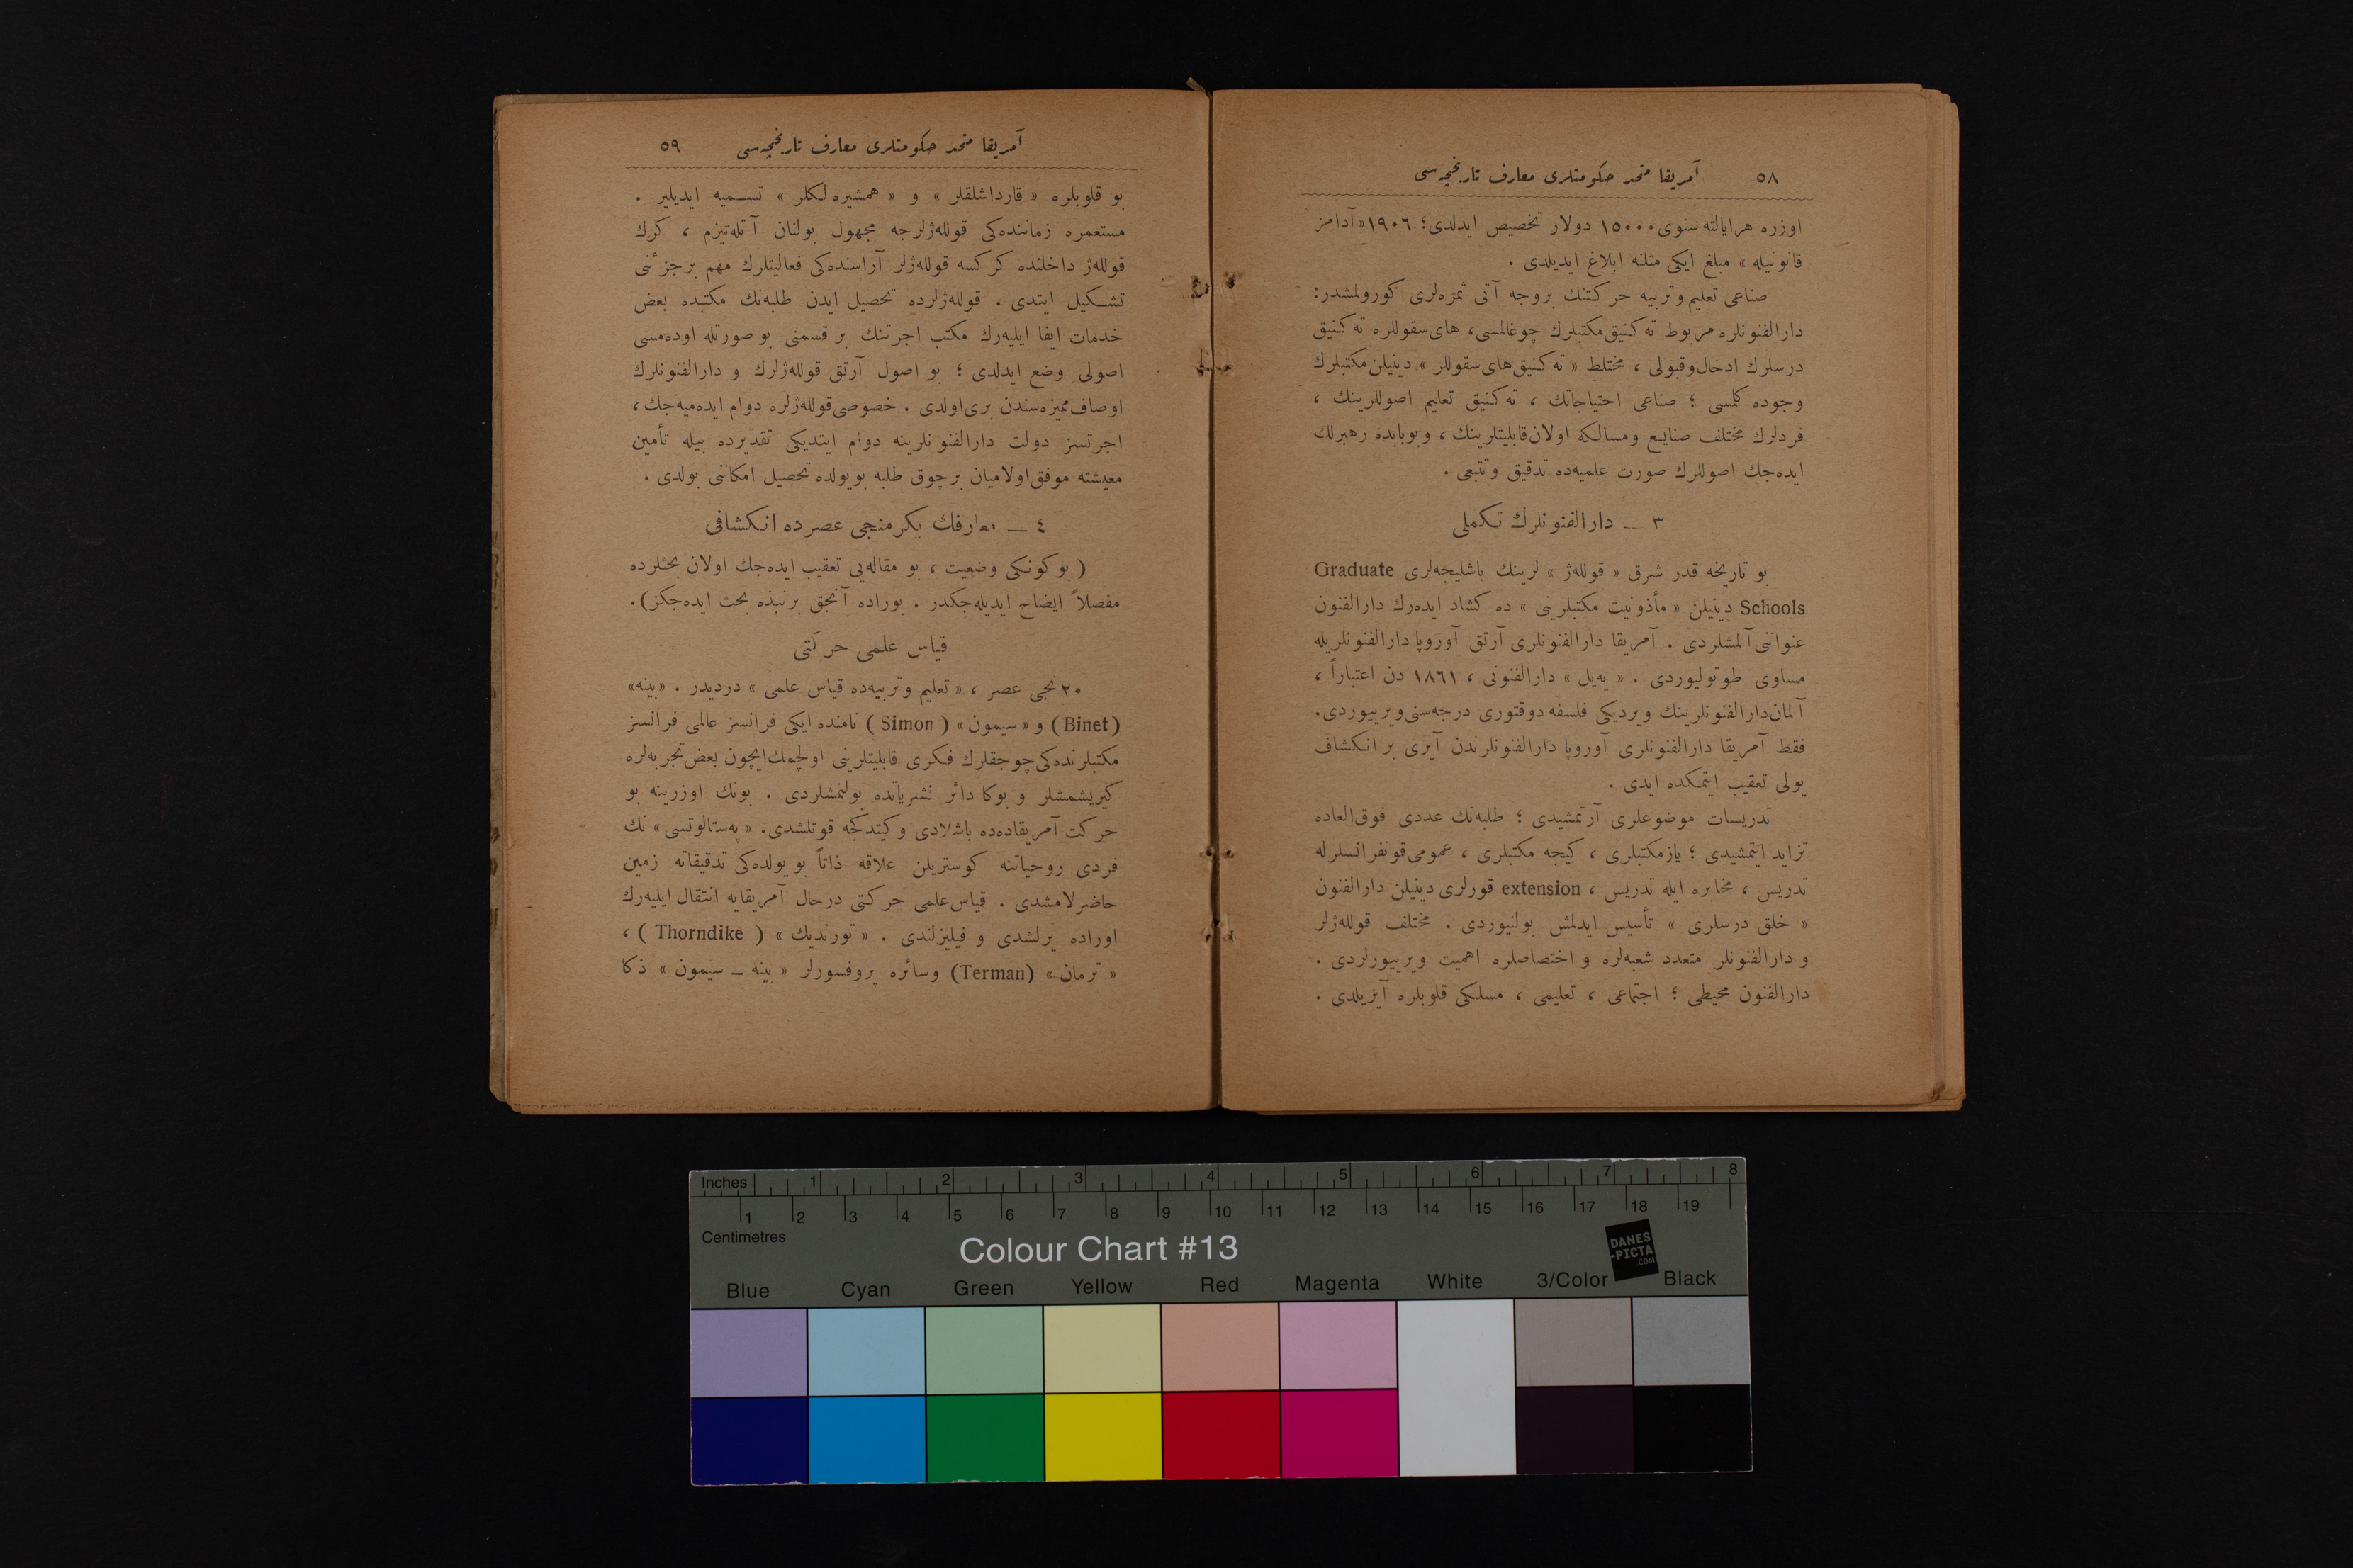 ٥٨ آمريقا متحد حكومتلرى معارف تاريخچه‌سى
اوزره هرايالته سنوى ١٥٠٠٠ دولار تخصيص ايدلدى؛ ١٩٠٦ «آدامز
قانونيله » مبلغ ايكى مثلنه ابلاغ ايديلدى .
صناعى تعليم وتربيه حركتنك بروجه آتى ثمره‌لرى كورولمشدر:
دارالفنونلره مربوط ته‌كنيق مكتبلرك چوغالمسى، هاى‌سقوللره ته‌كنيق
درسلرك ادخال وقبولى ، مختلط « ته‌كنيق هاى‌سقوللر » دينيلن مكتبلرك
وجوده كلمسى ؛ صناعى احتياجاتك ، ته‌كنيق تعليم اصوللرينك ،
فردلرك مختلف صنايع ومسالكه اولان قابليتلرينك ، وبوبابده رهبرلك
ايده‌جك اصوللرك صورت علميه‌ده تدقيق وتتبعى .
٣ ـ دارالفنونلرك تكملى
بو تاريخه قدر شرق « قوللەژ » لرينك باشليجه‌لرى Graduate
Schools دينيلن « مأذونيت مكتبلرينى » ده كشاد ايده‌رك دارالفنون
عنواننى آلمشلردى . آمريقا دارالفنونلرى آرتق آوروپا دارالفنونلريله
مساوى طوتوليوردى . « يه‌يل » دارالفنونى ، ١٨٦١ دن اعتباراً ،
آلمان دارالفنونلرينك ويرديكى فلسفه دوقتورى درجه‌سنى ويرييوردى.
فقط آمريقا دارالفنونلرى آوروپا دارالفنونلرندن آيرى بر انكشاف
يولى تعقيب ايتمكده ايدى .
تدريسات موضوعلرى آرتمشيدى ؛ طلبه‌نك عددى فوق‌العاده
تزايد ايتمشيدى ؛ يازمكتبلرى ، كيجه مكتبلرى ، عمومى قونفرانسلرله
تدريس ، مخابره ايله تدريس ، extension قورلرى دينيلن دارالفنون
« خلق درسلرى » تأسيس ايدلمش بولنيوردى . مختلف قوللەژلر
و دارالفنونلر متعدد شعبه‌لره و اختصاصلره اهميت ويرييورلردى .
دارالفنون محيطى ؛ اجتماعى ، تعليمى ، مسلكى قلوبلره آيريلدى .
آمريقا متحد حكومتلرى معارف تاريخچه‌سى ٥٩
بو قلوبلره « قارداشلقلر » و « همشيره‌لكلر » تسميه ايديلير .
مستعمره زماننده‌كى قوللەژلرجه مجهول بولنان آتله‌تيزم ، كرك
قوللەژ داخلنده كركسه قوللەژلر آراسنده‌كى فعاليتلرك مهم برجزئنى
تشكيل ايتدى . قوللەژلرده تحصيل ايدن طلبه‌نك مكتبده بعض
خدمات ايفا ايليه‌رك مكتب اجرتنك بر قسمنى بو صورتله اوده‌مسى
اصولى وضع ايدلدى ؛ بو اصول آرتق قوللەژلرك و دارالفنونلرك
اوصاف مميزه‌سندن برى اولدى . خصوصى قوللەژلره دوام ايده‌ميه‌جك ،
اجرتسز دولت دارالفنونلرينه دوام ايتديكى تقديرده بيله تأمين
معيشته موفق اولاميان برچوق طلبه بويولده تحصيل امكاننى بولدى .
٤ ـ معارفك يكرمنجى عصرده انكشافى
( بوكونكى وضعيت ، بو مقاله‌يى تعقيب ايده‌جك اولان بحثلرده
مفصلاً ايضاح ايديله‌جكدر . بوراده آنجق برنبذه بحث ايده‌جكز).
قياس علمى حركتى
٢٠ نجى عصر ، « تعليم وتربيه‌ده قياس علمى » دردیدر . «بينه»
(Binet) و « سيمون » ( Simon ) نامنده ايكى فرانسز عالمى فرانسز
مكتبلرنده‌كى چوجقلرك فكرى قابليتلرينى اولچمك ايچون بعض تجربه‌لره
كيريشمشلر و بوكا دائر نشرياتده بولنمشلردى . بونك اوزرينه بو
حركت آمريقاده‌ده باشلادى وكيتدكجه قوتلشدى. « په‌ستالوتسى » نك
فردى روحياتنه كوستريلن علاقه ذاتاً بو يولده‌كى تدقيقاته زمين
حاضرلامشدى . قياس علمى حركتى درحال آمريقايه انتقال ايليه‌رك
اوراده يرلشدى و فيليزلندى . « تورنديك » ( Thorndike ) ،
« ترمان » (Terman) وسائره پروفسورلر « بينه ـ سيمون » ذكا
Inches 1 2 3 4 5 6 7 8
1 2 3 4 5 6 7 8 9 10 11 12 13 14 15 16 17 18 19
Centimetres
Colour Chart #13
DANES
-PICTA
.COM
Blue Cyan Green Yellow Red Magenta White 3/Color Black